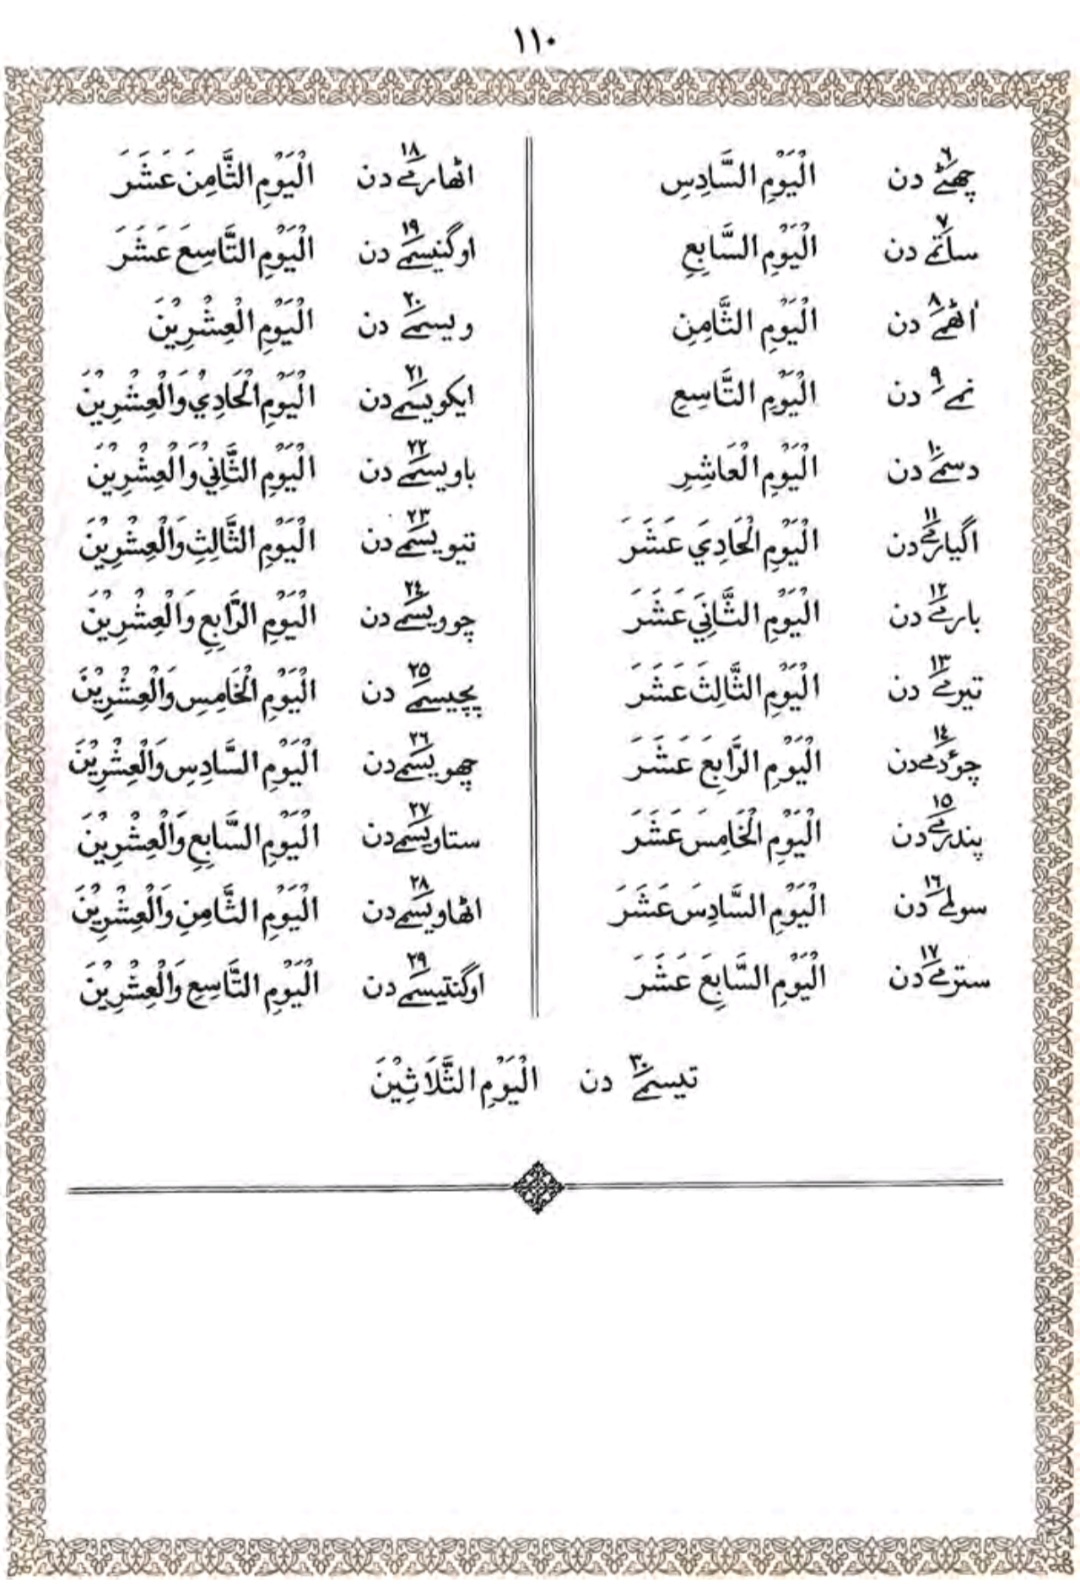 ١١٠
چھٹے ٦ دن الْيَوْمِ السَّادِسِ
ساتمے ٧ دن الْيَوْمِ السَّابِعِ
اٰٹھمے ٨ دن الْيَوْمِ الثَّامِنِ
نمے ٩ دن الْيَوْمِ التَّاسِعِ
دسمے ١٠ دن الْيَوْمِ الْعَاشِرِ
اگيارمے ١١ دن الْيَوْمِ الْحَادِيَ عَشَرَ
بارمے ١٢ دن الْيَوْمِ الثَّانِيَ عَشَرَ
تيرمے ١٣ دن الْيَوْمِ الثَّالِثَ عَشَرَ
چؤدمے ١٤ دن الْيَوْمِ الرَّابِعَ عَشَرَ
پندرمے ١٥ دن الْيَوْمِ الْخَامِسَ عَشَرَ
سولمے ١٦ دن الْيَوْمِ السَّادِسَ عَشَرَ
سترمے ١٧ دن الْيَوْمِ السَّابِعَ عَشَرَ
اٹھارمے ١٨ دن الْيَوْمِ الثَّامِنَ عَشَرَ
اوگنيسمے ١٩ دن الْيَوْمِ التَّاسِعَ عَشَرَ
ويسمے ٢٠ دن الْيَوْمِ الْعِشْرِيْنَ
ايكويسمے ٢١ دن الْيَوْمِ الْحَادِيْ وَالْعِشْرِيْنَ
باويسمے ٢٢ دن الْيَوْمِ الثَّانِيْ وَالْعِشْرِيْنَ
تنويسمے ٢٣ دن الْيَوْمِ الثَّالِثِ وَالْعِشْرِيْنَ
چوويسمے ٢٤ دن الْيَوْمِ الرَّابِعِ وَالْعِشْرِيْنَ
پچيسمے ٢٥ دن الْيَوْمِ الْخَامِسِ وَالْعِشْرِيْنَ
چھويسمے ٢٦ دن الْيَوْمِ السَّادِسِ وَالْعِشْرِيْنَ
ستاويسمے ٢٧ دن الْيَوْمِ السَّابِعِ وَالْعِشْرِيْنَ
اٹھاويسمے ٢٨ دن الْيَوْمِ الثَّامِنِ وَالْعِشْرِيْنَ
اوگنتيسمے ٢٩ دن الْيَوْمِ التَّاسِعِ وَالْعِشْرِيْنَ
تيسمے ٣٠ دن الْيَوْمِ الثَّلَاثِيْنَ